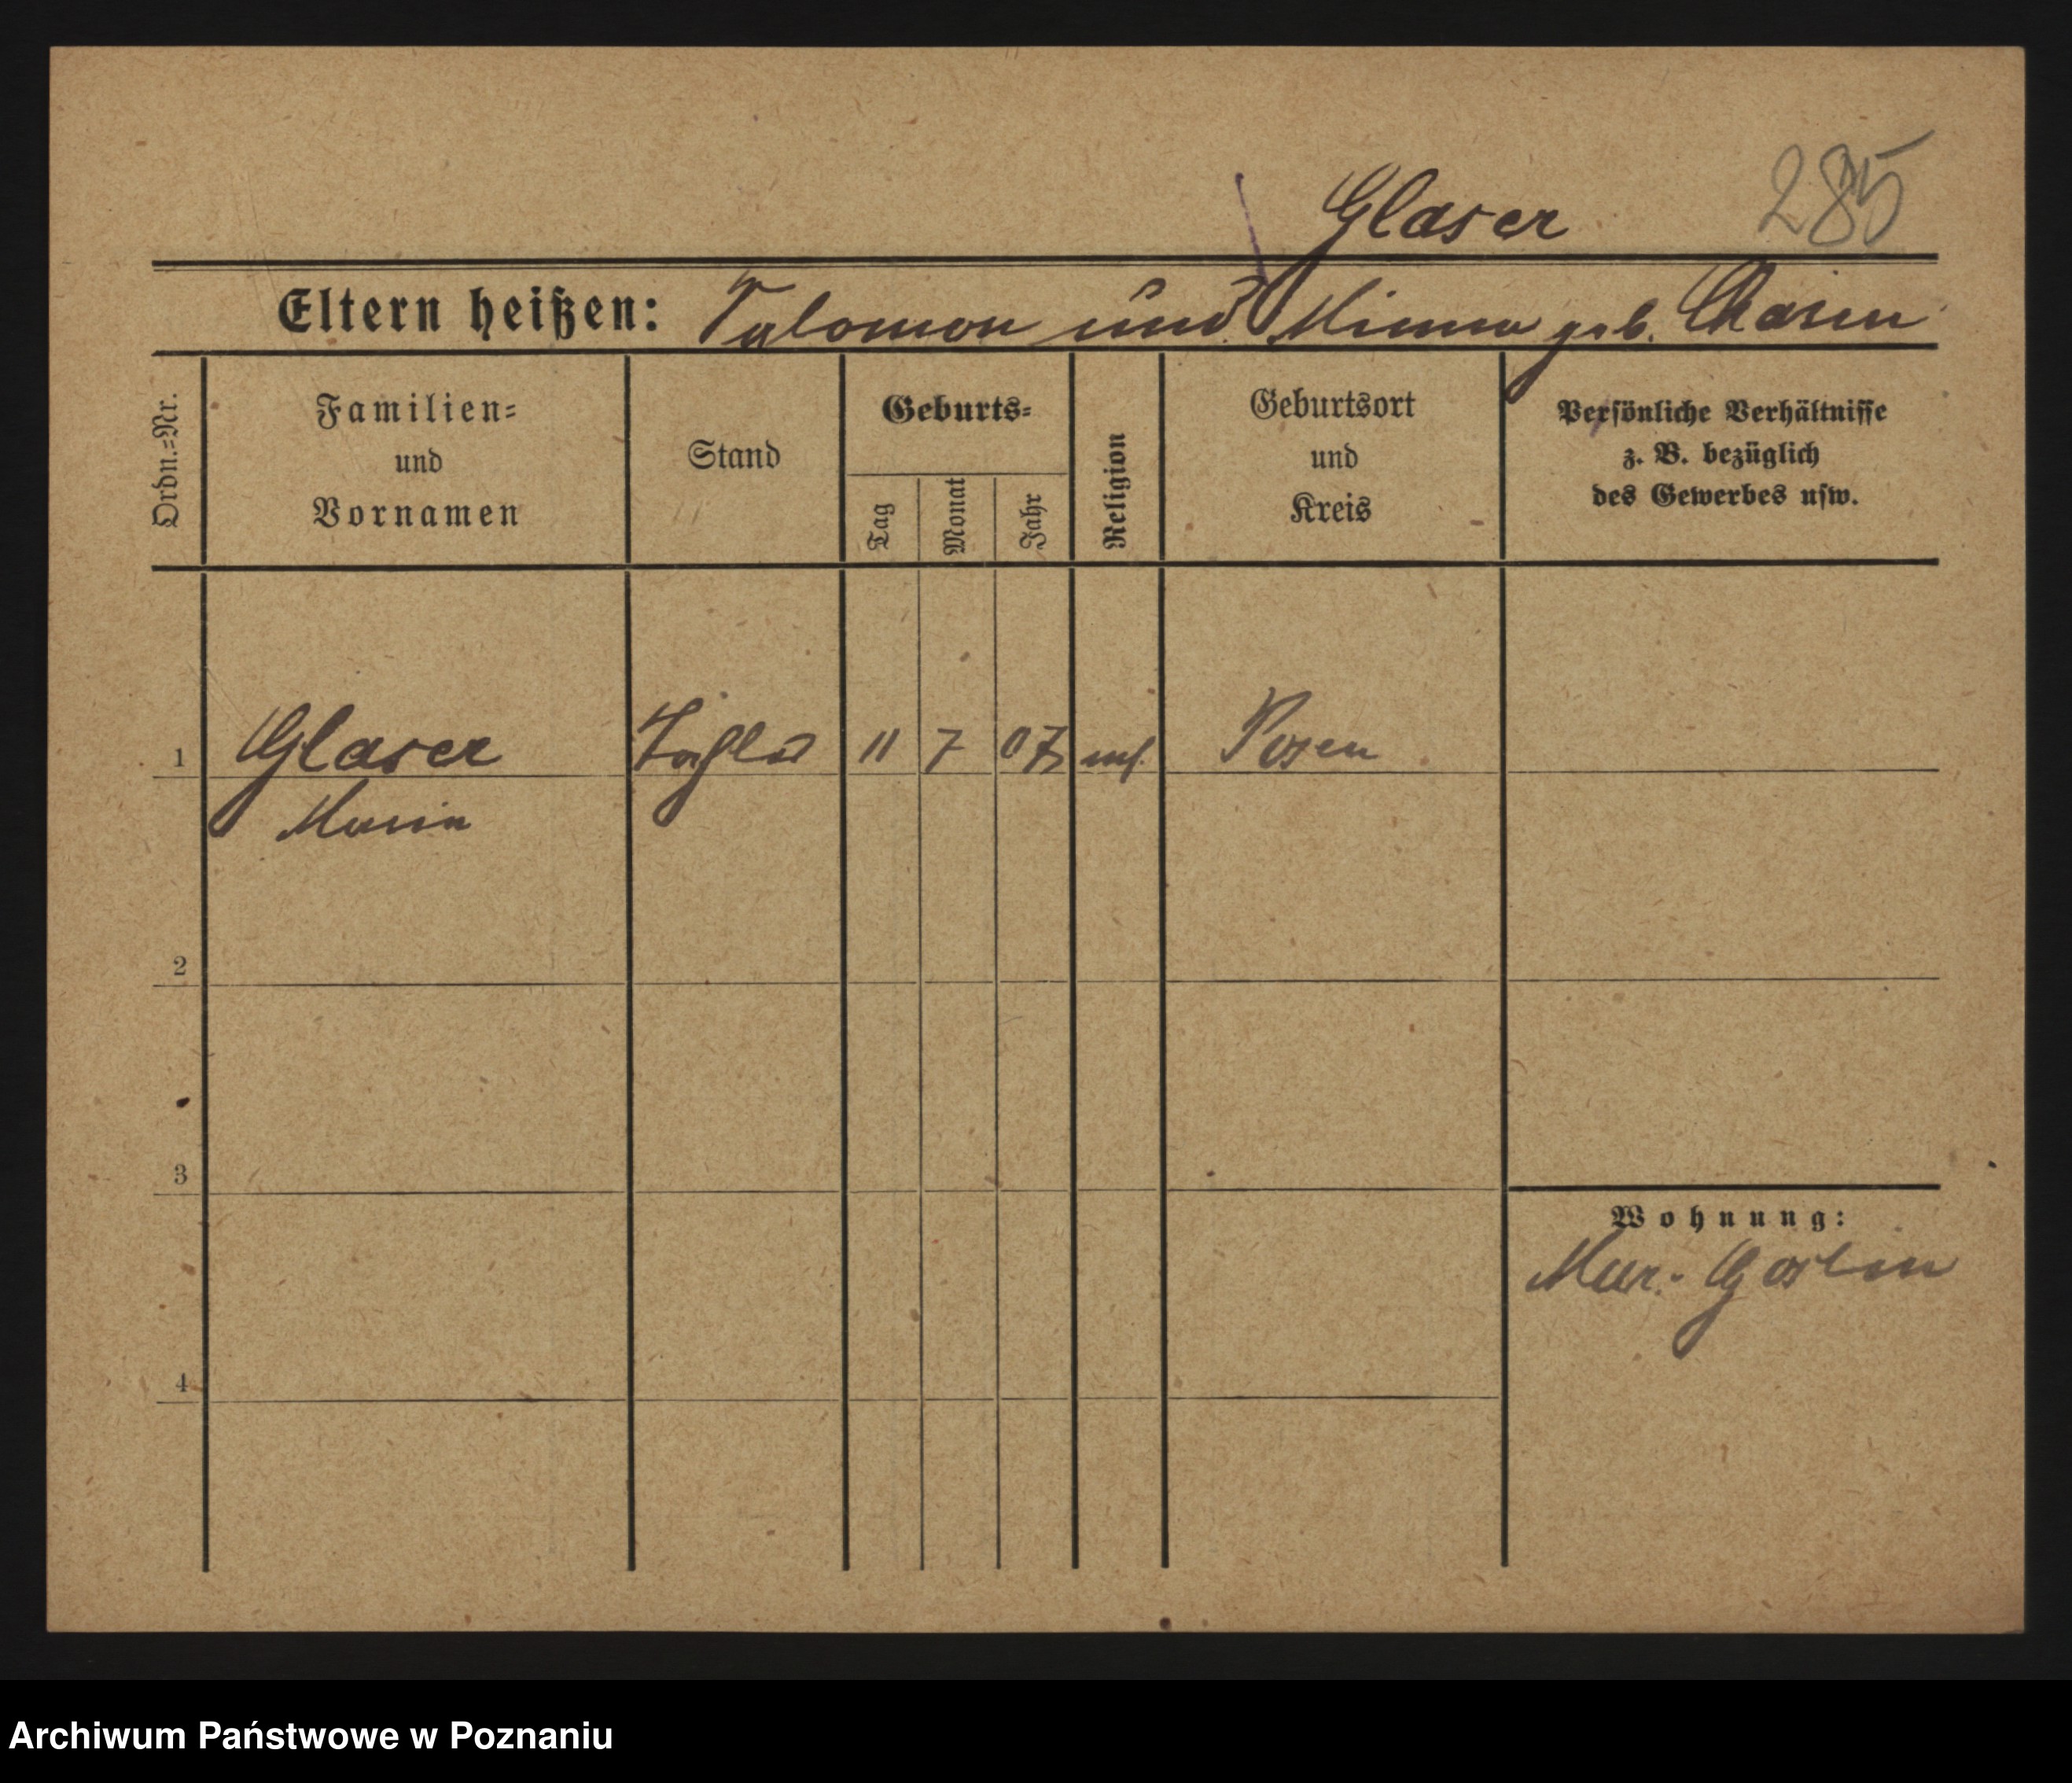 285
Glaser
Eltern heißen: Salomon und Minna geb. Chaim
Ordn.=Nr.
Familien=
und
Vornamen
Stand
Geburts=
Tag
Monat
Jahr
Religion
Geburtsort
und
Kreis
Persönliche Verhältnisse
z. B. bezüglich
des Gewerbes usw.
1 Glaser 11 7 07 Posen
2
3
4
Wohnung:
Mur. Goslin
Archiwum Państwowe w Poznaniu